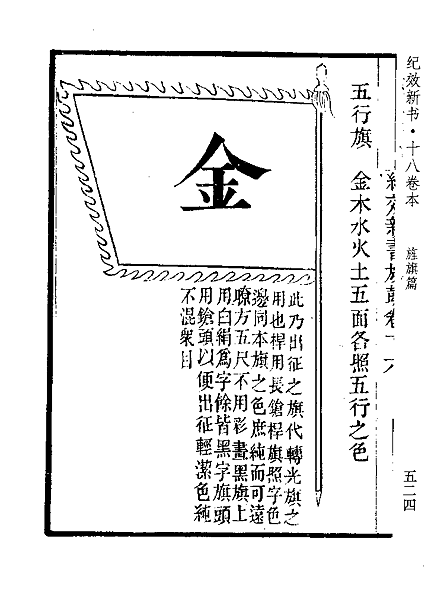 纪效新书·十八卷本　旌旗篇
五二四
五行旗　金木水火土五面各照五行之色
金
此乃出征之旗代轉光旗之
用也桿用長鎗桿旗照字色
邊同本旗之色庶純而可遠
瞭方五尺不用彩畫黑旗上
用白絹爲字餘皆黑字旗頭
用鎗頭以便出征輕潔色純
不混衆目